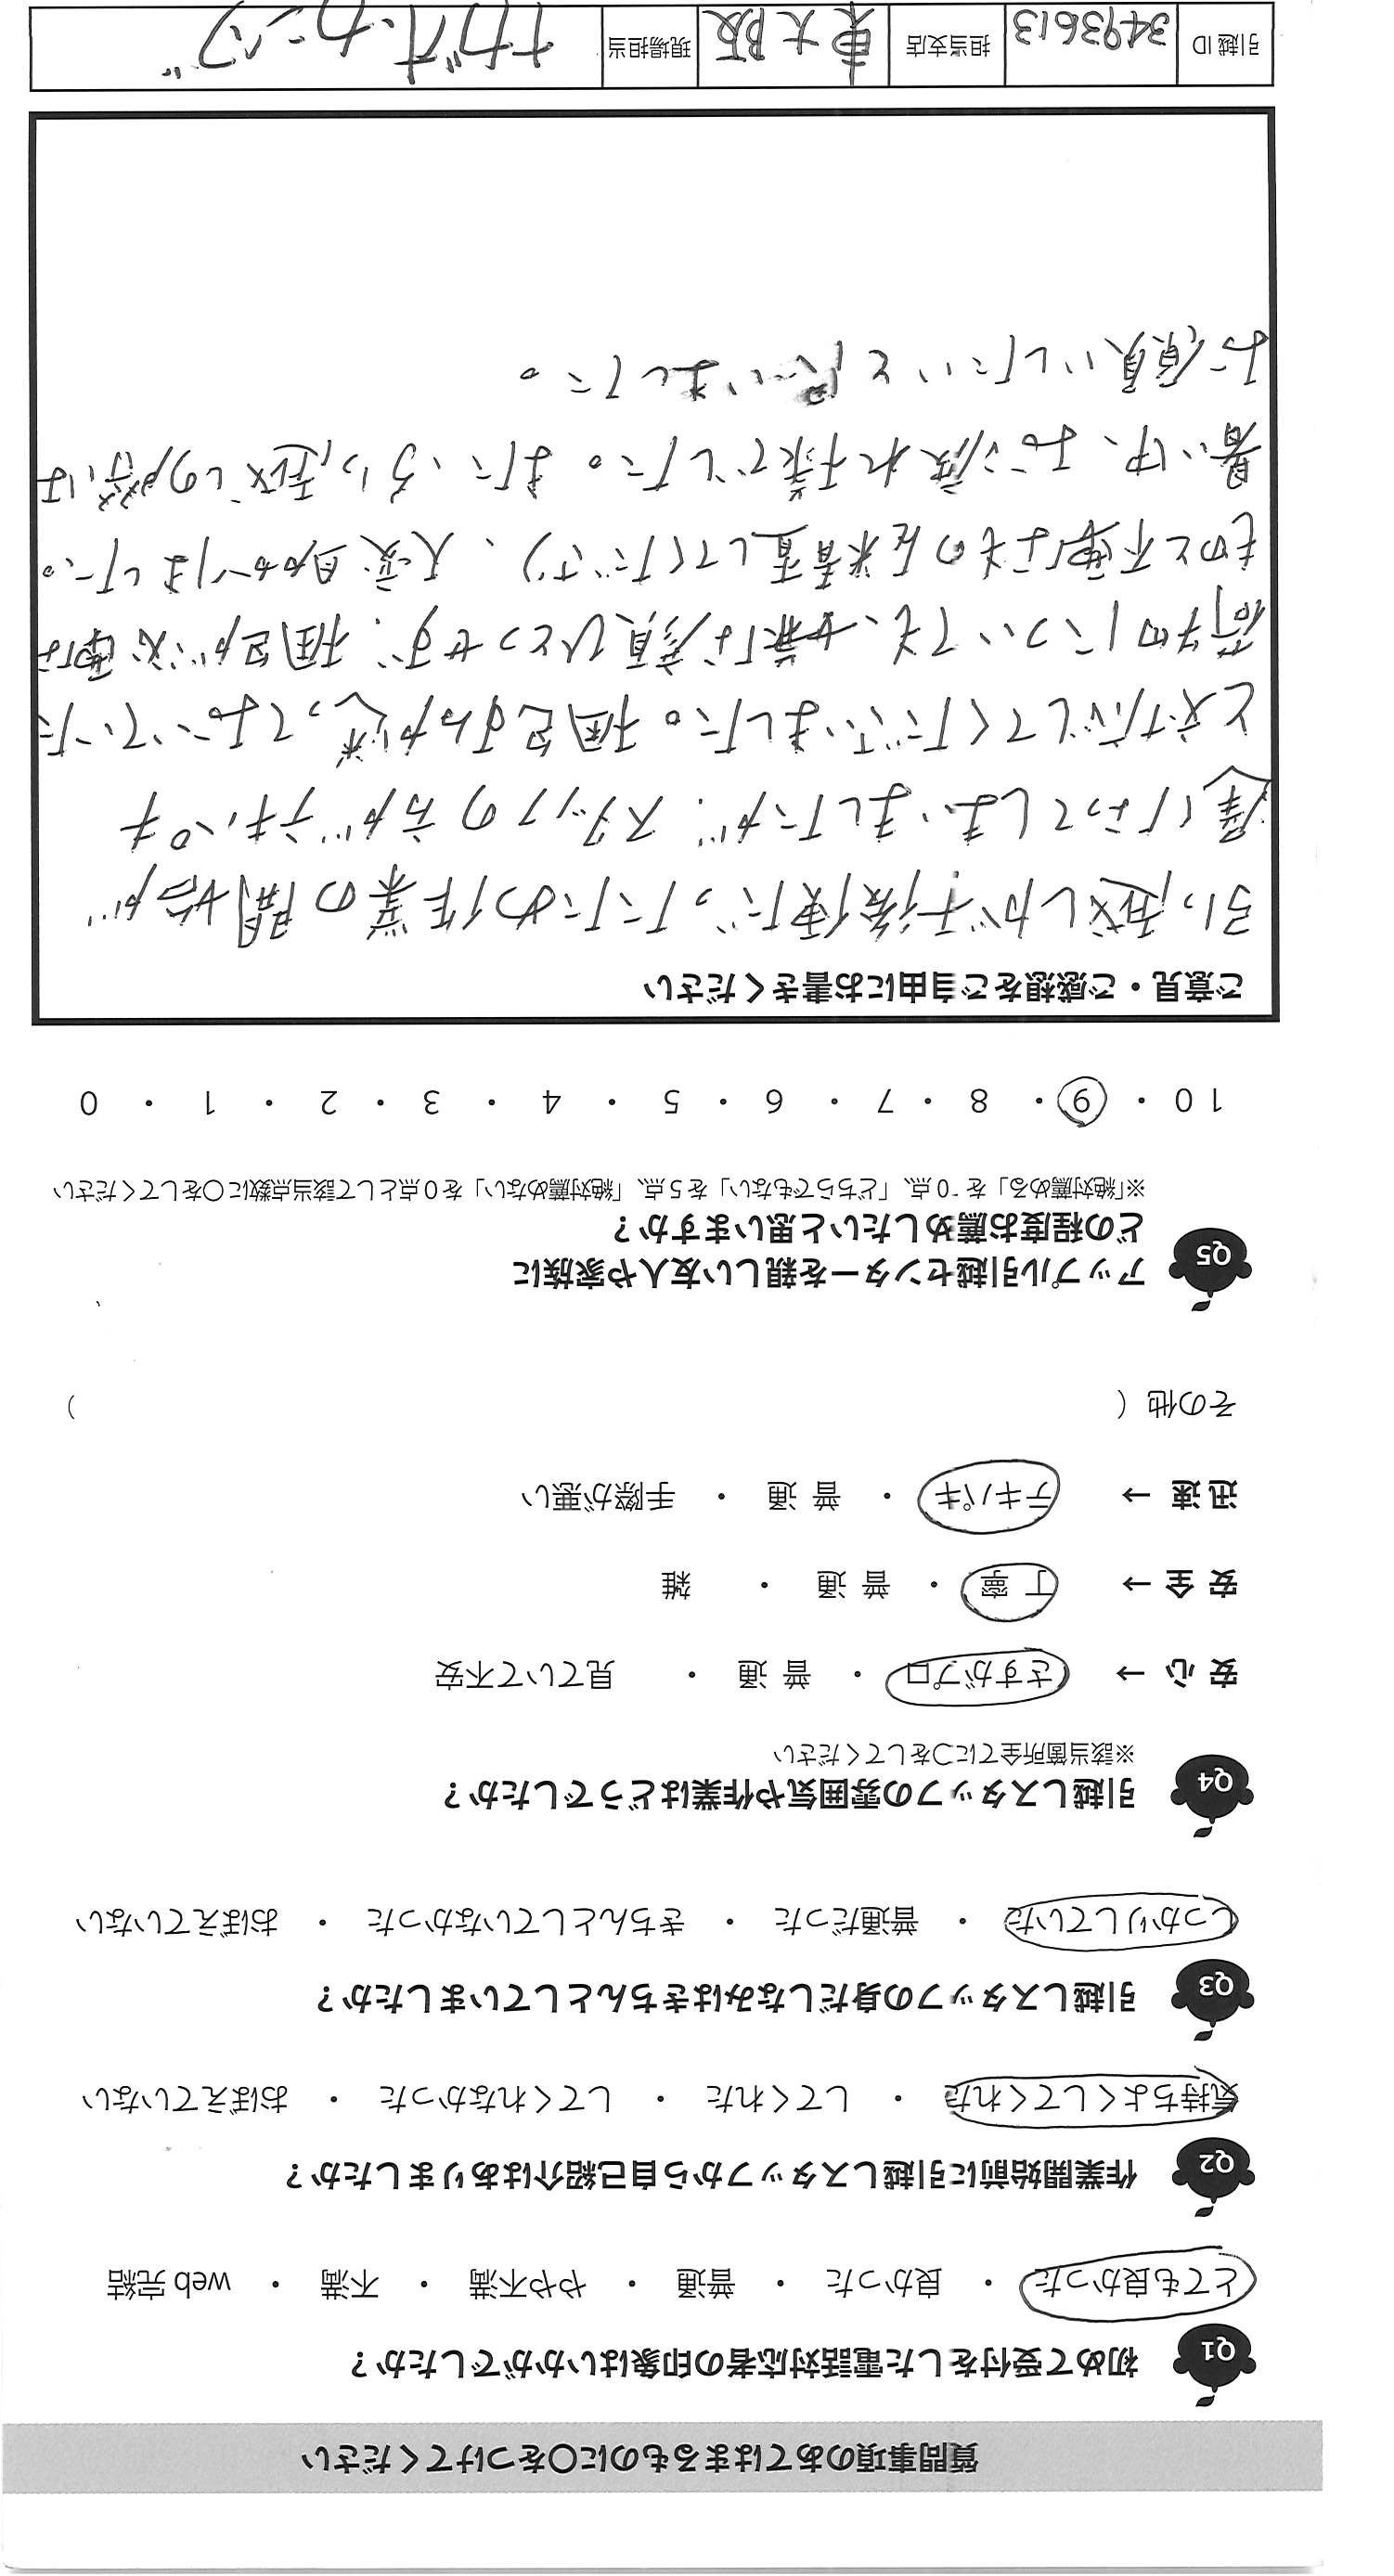 質問事項のあてはまるものに〇をつけてください
Q1 初めて受付をした電話対応者の印象はいかがでしたか？
とても良かった ・ 良かった ・ 普通 ・ やや不満 ・ 不満 ・ web 完結
Q2 作業開始前に引越しスタッフから自己紹介はありましたか？
気持ちよくしてくれた ・ してくれた ・ してくれなかった ・ おぼえていない
Q3 引越しスタッフの身だしなみはきちんとしていましたか？
しっかりしていた ・ 普通だった ・ きちんとしていなかった ・ おぼえていない
Q4 引越しスタッフの雰囲気や作業はどうでしたか？
※該当箇所全てに〇をしてください
安 心 → さすがプロ ・ 普 通 ・ 見ていて不安
安 全 → 丁 寧 ・ 普 通 ・ 雑
迅 速 → テキパキ ・ 普 通 ・ 手際が悪い
その他（ ）
Q5 アップル引越センターを親しい友人や家族に
どの程度お薦めしたいと思いますか？
※「絶対薦める」を10点、「どちらでもない」を5点、「絶対薦めない」を0点として該当点数に〇をしてください
10 ・ 9 ・ 8 ・ 7 ・ 6 ・ 5 ・ 4 ・ 3 ・ 2 ・ 1 ・ 0
ご意見・ご感想をご自由にお書きください
引っ越しが午後便だったため作業の開始が
遅くなってしまいましたが、スタッフの方がテキパキ
と対応してくださいました。梱包すんが迷っておいていた
荷物についても、嫌な顔ひとつせず、梱包が必要な
ものと不要なものを精査してくださり、大変助かりました。
暑い中、お疲れ様でした。また、引っ越しの際は
お願いしたいと思いました。
引越ID 3493613 担当支店 東大阪 現場担当 ナガオ、カンバ